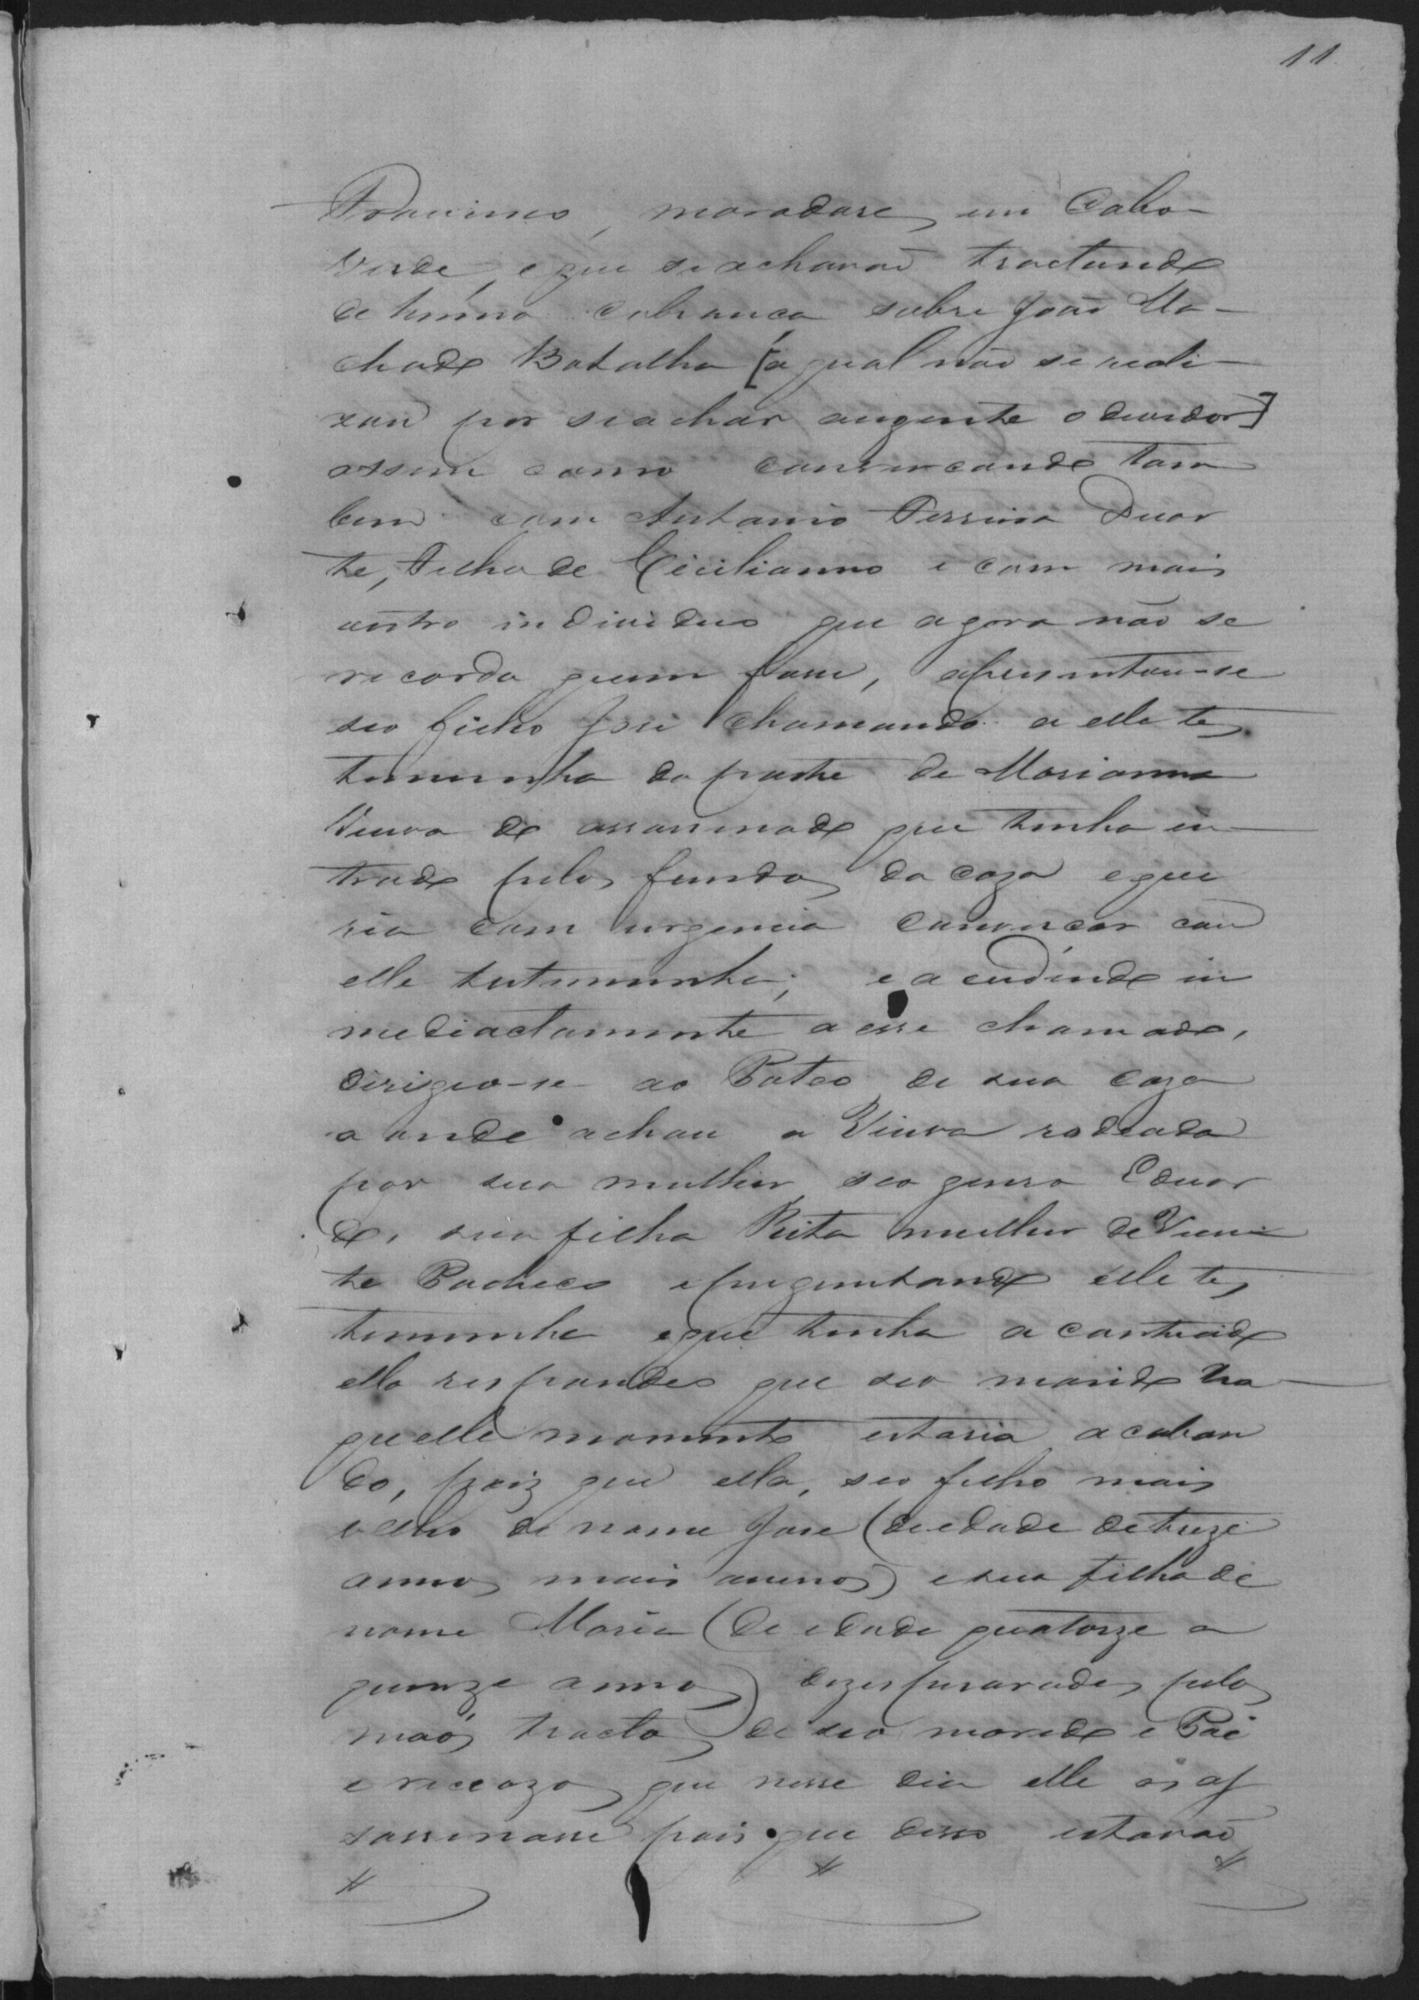 11
Francisco, moradores em Cabo-
Verde, e que se achavaõ tractando
de huma cobrança sobre João Ma-
chado Batalha [a qual não se reali-
zou por se achar auzente o devedor]
assim como convercando tam
bem com Antonio Ferreira Duar
te, filho de Ciciliano e com mais
outro individuo que agora não se
recorda quem fosse, aprezentou-se
seo filho José chamando a elle tes
temunha da parte de Marianna
Viuva do assassinado que tinha en-
trado pelos fundos da caza e que
ria com urgencia convercar com
elle testemunha; e acudindo im
mediactamente a esse chamado,
dirigio-se ao Pateo de sua caza
a onde achou a Viuva rodeada
por sua mulher, seo genro Eduar
do, sua filha Rita mulher de Vicen
te Pacheco e preguntando elle tes
temunha o que tinha acontecido
ella respondeo que seo marido na
quelle momento estaria acaban
do, poiz que ella, seo filho mais
velho de nome Jose (de edade de treze
annos mais ou menos) e sua filha de
nome Maria (de edade quatorze a
quinze annos) dezesperarados pelos
maos tractos de seo marido e Pai
e receozos que nesse dia elle os as
sassinasse pois que disso estavaõ